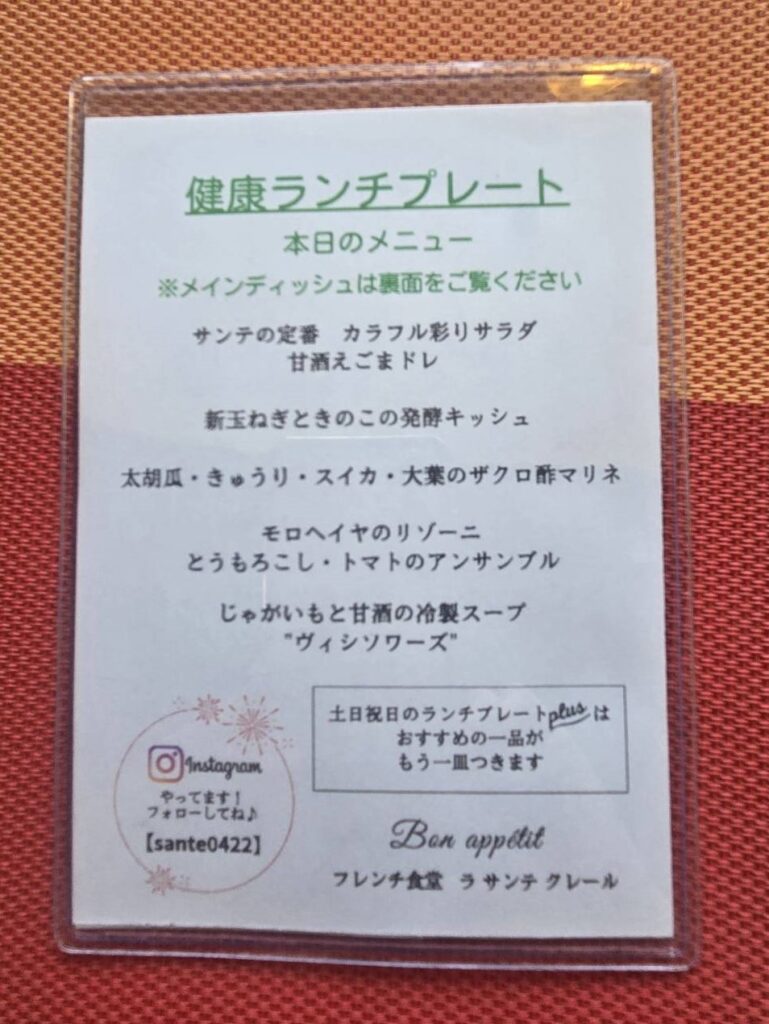 健康ランチプレート
本日のメニュー
※メインディッシュは裏面をご覧ください
サンテの定番 カラフル彩りサラダ
甘酒えごまドレ
新玉ねぎときのこの発酵キッシュ
太胡瓜・きゅうり・スイカ・大葉のザクロ酢マリネ
モロヘイヤのリゾーニ
とうもろこし・トマトのアンサンブル
じゃがいもと甘酒の冷製スープ
"ヴィシソワーズ"
土日祝日のランチプレートplusは
おすすめの一品が
もう一皿つきます
Instagram
やってます！
フォローしてね♪
【sante0422】
Bon appétit
フレンチ食堂 ラ サンテ クレール